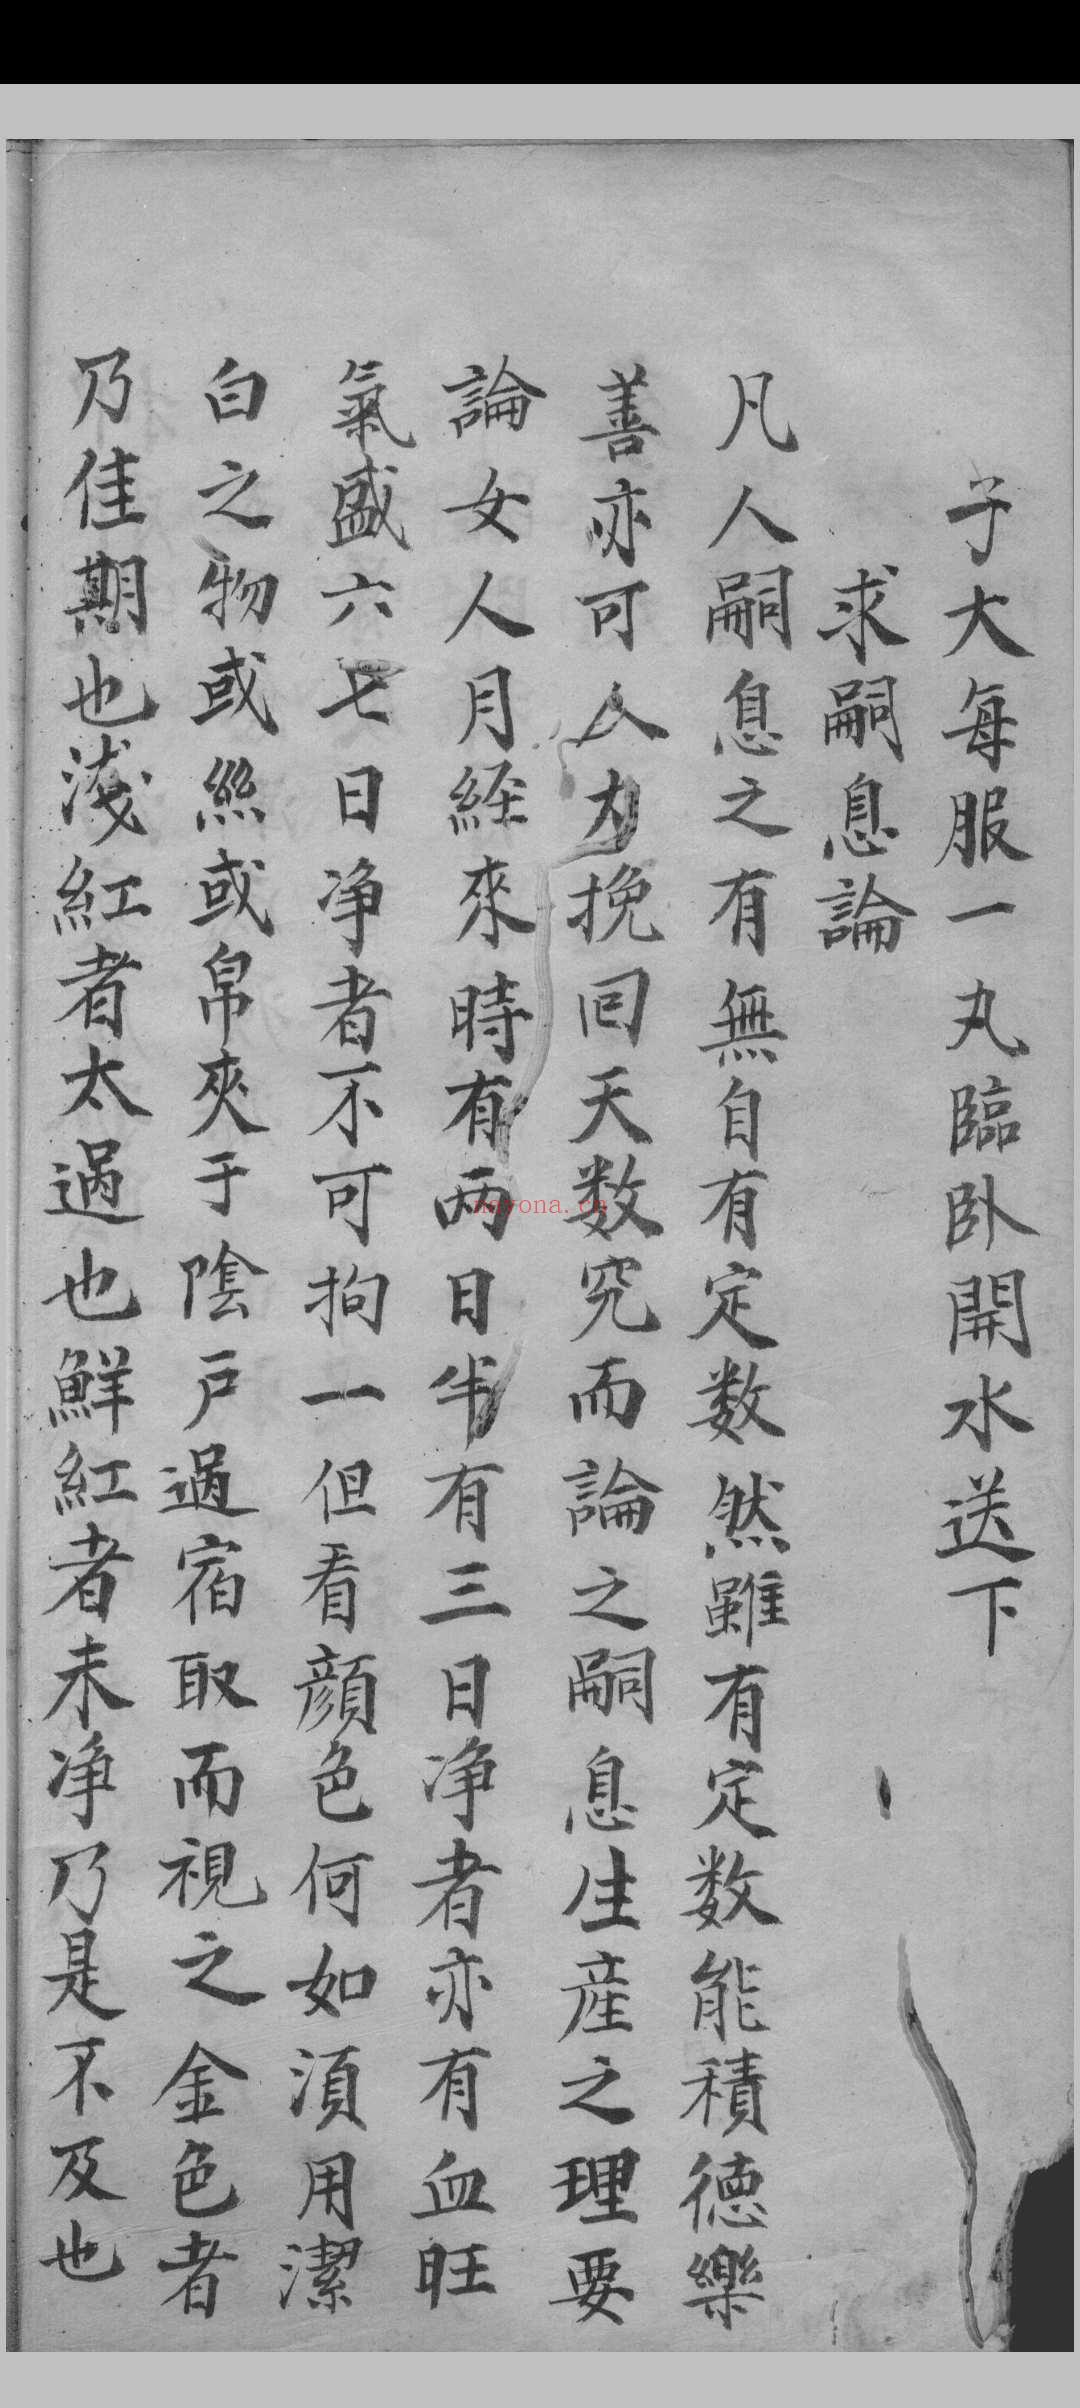 子大每服一丸臨卧開水送下
求嗣息論
凡人嗣息之有無自有定数然雖有定数能積德樂
善亦可人力挽回天数究而論之嗣息生産之理要
論女人月経來時有两日半有三日净者亦有血旺
氣盛六七日净者不可拘一但看顔色何如須用潔
白之物或絲或帛夾于陰戸過宿取而視之金色者
乃佳期也淺紅者太過也鮮紅者未净乃是不及也
nayona.cn